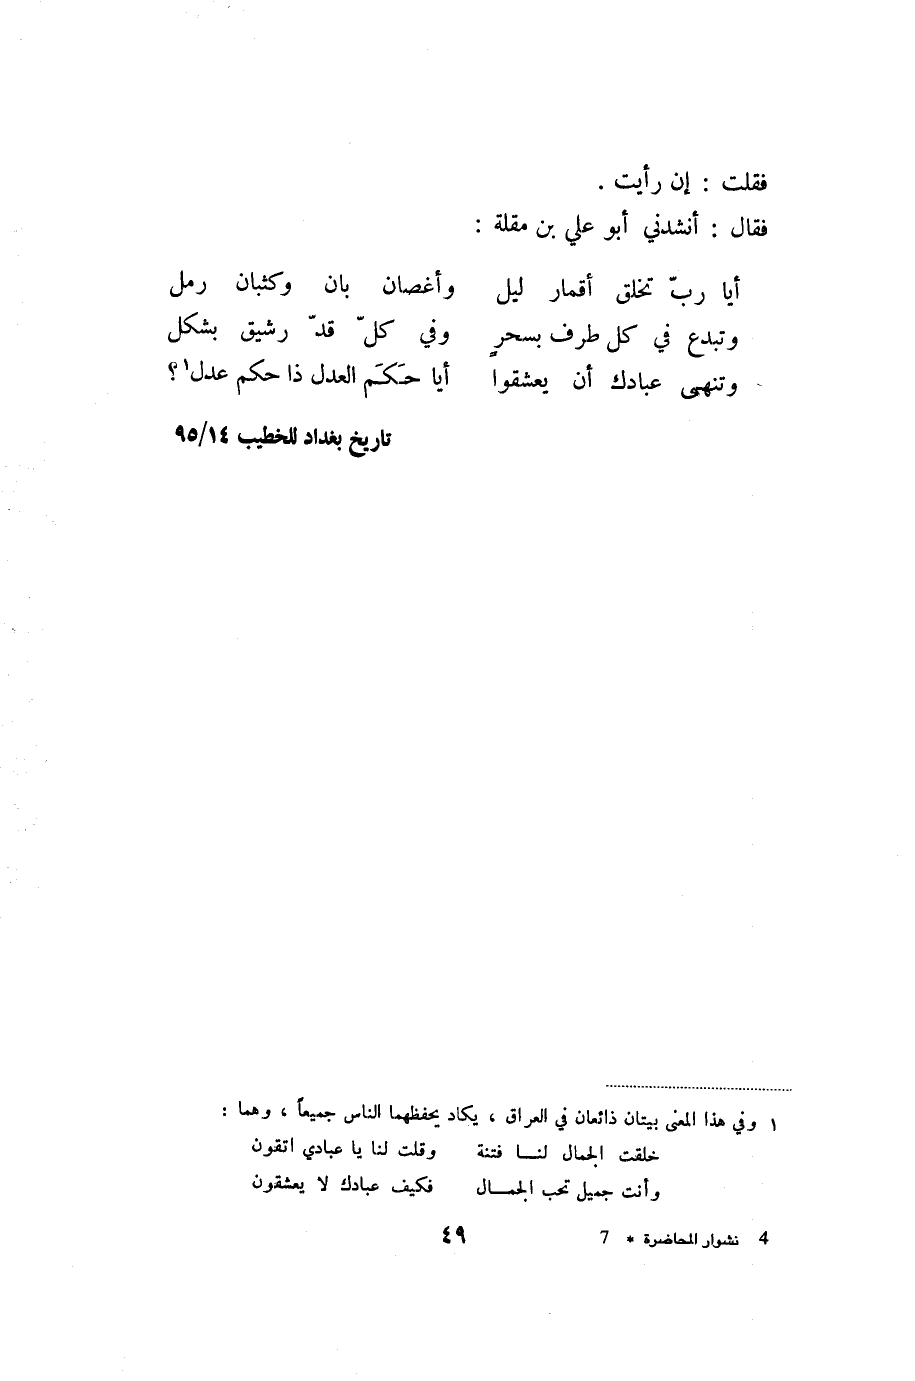 فقلت : إن رأيت .
فقال : أنشدني أبو علي بن مقلة :
أيا ربّ تخلق أقمار ليل وأغصان بان وكثبان رمل
وتبدع في كل طرف بسحرٍ وفي كلّ قدّ رشيق بشكل
وتنهى عبادك أن يعشقوا أيا حَكَم العدل ذا حكم عدل١ ؟
تاريخ بغداد للخطيب ٩٥/١٤
١ وفي هذا المعنى بيتان ذائعان في العراق ، يكاد يحفظهما الناس جميعاً ، وهما :
خلقت الجمال لنــا فتنة وقلت لنا يا عبادي اتقون
وأنت جميل تحب الجمــال فكيف عبادك لا يعشقون
4 نشوار المحاضرة * 7
٤٩